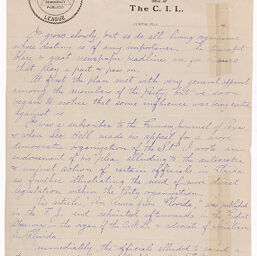 DEMOCRACY
PUBLICITY
LEAGUE
The C. I. L.
It grows slowly, but so do all living organisms
whose destiny is of any importance. The trumpet
blare & great newspaper headlines are for
that play a part & pass on.
At first the plan met with very general approval
among the members of the Party, but we soon
began to notice that some influence was being exerted
against us.
I was a subscriber to the
& when Geo. Bell made an appeal for a more
democratic organization of the S. P. I wrote an
endorsement of his plea, alluding to the autocratic
& unjust action of certain officials in Florida
as further illustrating the need of more direct
legislation within the Party organization.
This article "An Echo from Florida," was published
in the and reprinted afterwards in the
the organ of the & advocate of socialism
in Florida.
Immediately the officials alluded to raised a